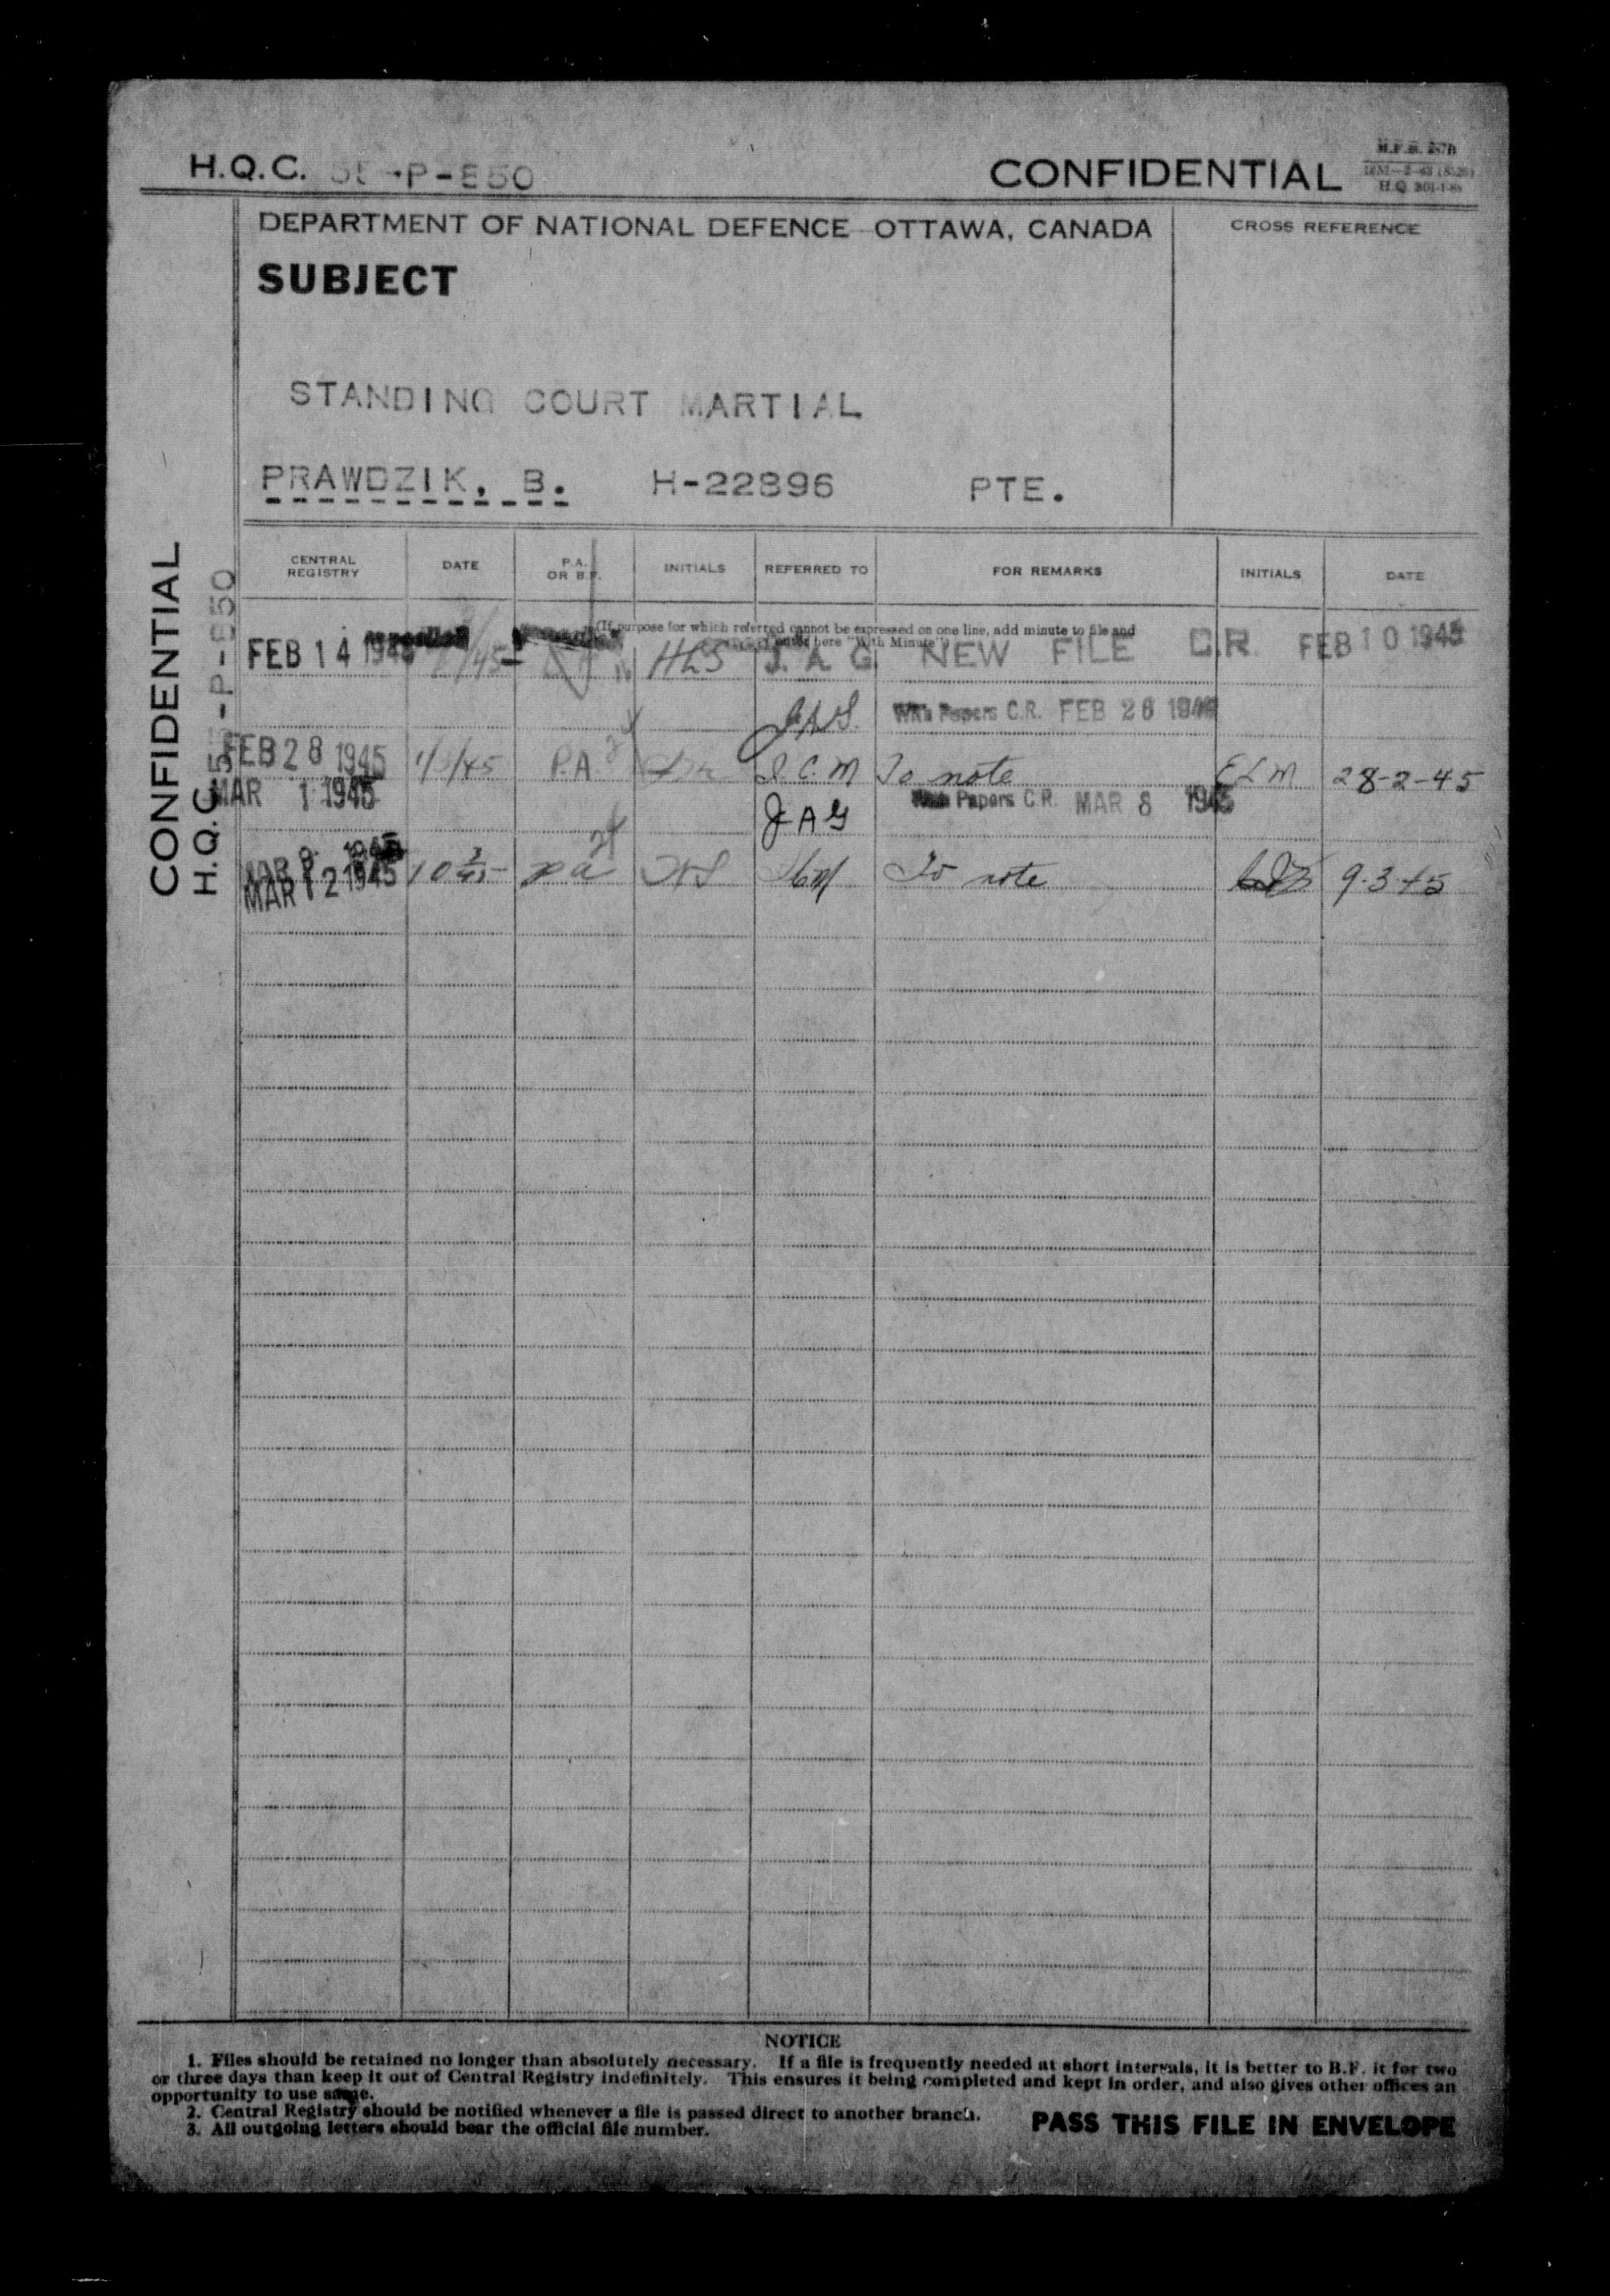 H.Q.C. 55-P-850
CONFIDENTIAL
M.F.B. 287B
H.Q. 301-1-88
DEPARTMENT OF NATIONAL DEFENCE OTTAWA, CANADA
CROSS REFERENCE
SUBJECT
STANDING COURT MARTIAL
PRAWDZIK, B. H-22896 PTE.
CONFIDENTIAL
H.Q.C. 55-P-850
CENTRAL REGISTRY DATE P.A. OR B.F. INITIALS REFERRED TO FOR REMARKS INITIALS DATE
(If purpose for which referred cannot be expressed on one line, add minute to file and
enter here "With Minute")
FEB 14 1945 HLS J. A. G. NEW FILE C.R. FEB 10 1945
J.A.G. With Papers C.R. FEB 26 1945
FEB 28 1945 1/3/45 P.A. To note ELM 28-2-45
MAR 1 1945 JAG With Papers C.R. MAR 8 1945
MAR 9 1945 10 3/45 pa To note 9-3-45
MAR 12 1945
NOTICE
1. Files should be retained no longer than absolutely necessary. If a file is frequently needed at short intervals, it is better to B.F. it for two
or three days than keep it out of Central Registry indefinitely. This ensures it being completed and kept in order, and also gives other offices an
opportunity to use same.
2. Central Registry should be notified whenever a file is passed direct to another branch.
3. All outgoing letters should bear the official file number.
PASS THIS FILE IN ENVELOPE